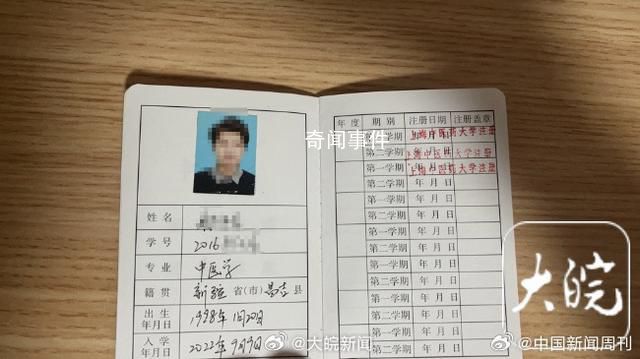 姓名
学号 2016
专业 中医学
籍贯 新疆省(市)昌吉县
出生年月日 1998年1月20日
入学年月日 2022年9月9日
年度 期别 注册日期 注册盖章
第一学期 年月日 上海中医药大学注册
第二学期 年月日 上海中医药大学注册
第一学期 年月日 上海中医药大学注册
第二学期 年月日
第一学期 年月日
第二学期 年月日
第一学期 年月日
第二学期 年月日
第一学期 年月日
第二学期 年月日
第一学期 年月日
第二学期 年月日
奇闻事件
大皖
@大皖新闻
@中国新闻周刊